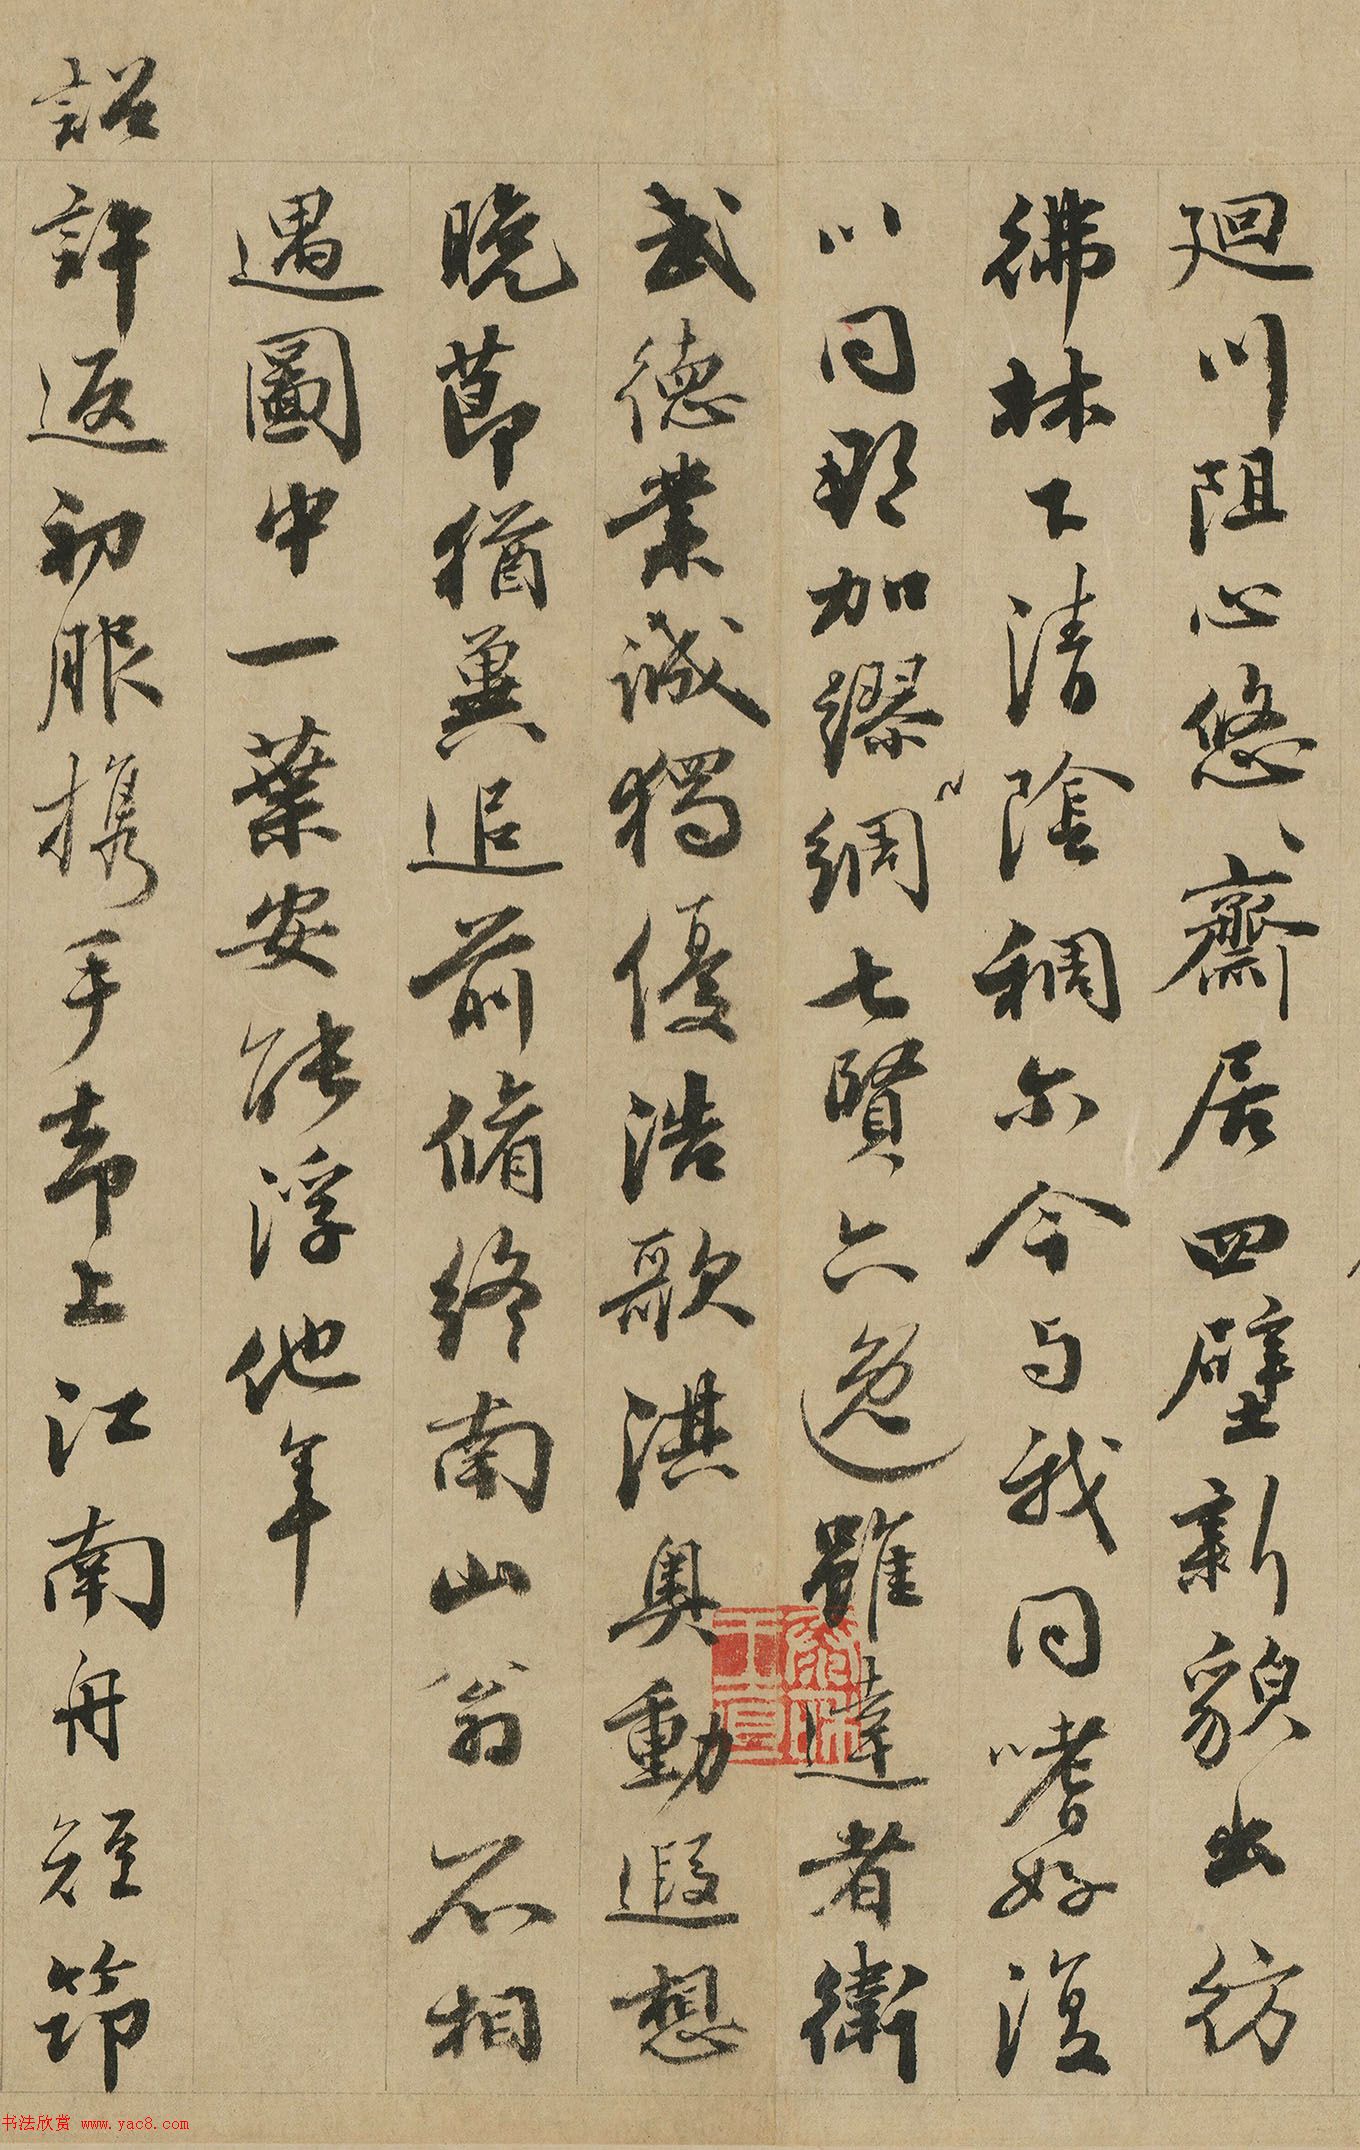 廻川阻心悠、齋居四壁新貌出彷
彿林下清陰稠尔今与我同嗜好復
以同那加繆綢七賢六逸雖達者衛
武德業誠獨優浩歌淇奧動遐想
晚節猶冀追前脩終南山翁不相
遇圖中一葉安能浮他年
詔許返初服携手却上江南舟短笻
书法欣赏 www.yac8.com